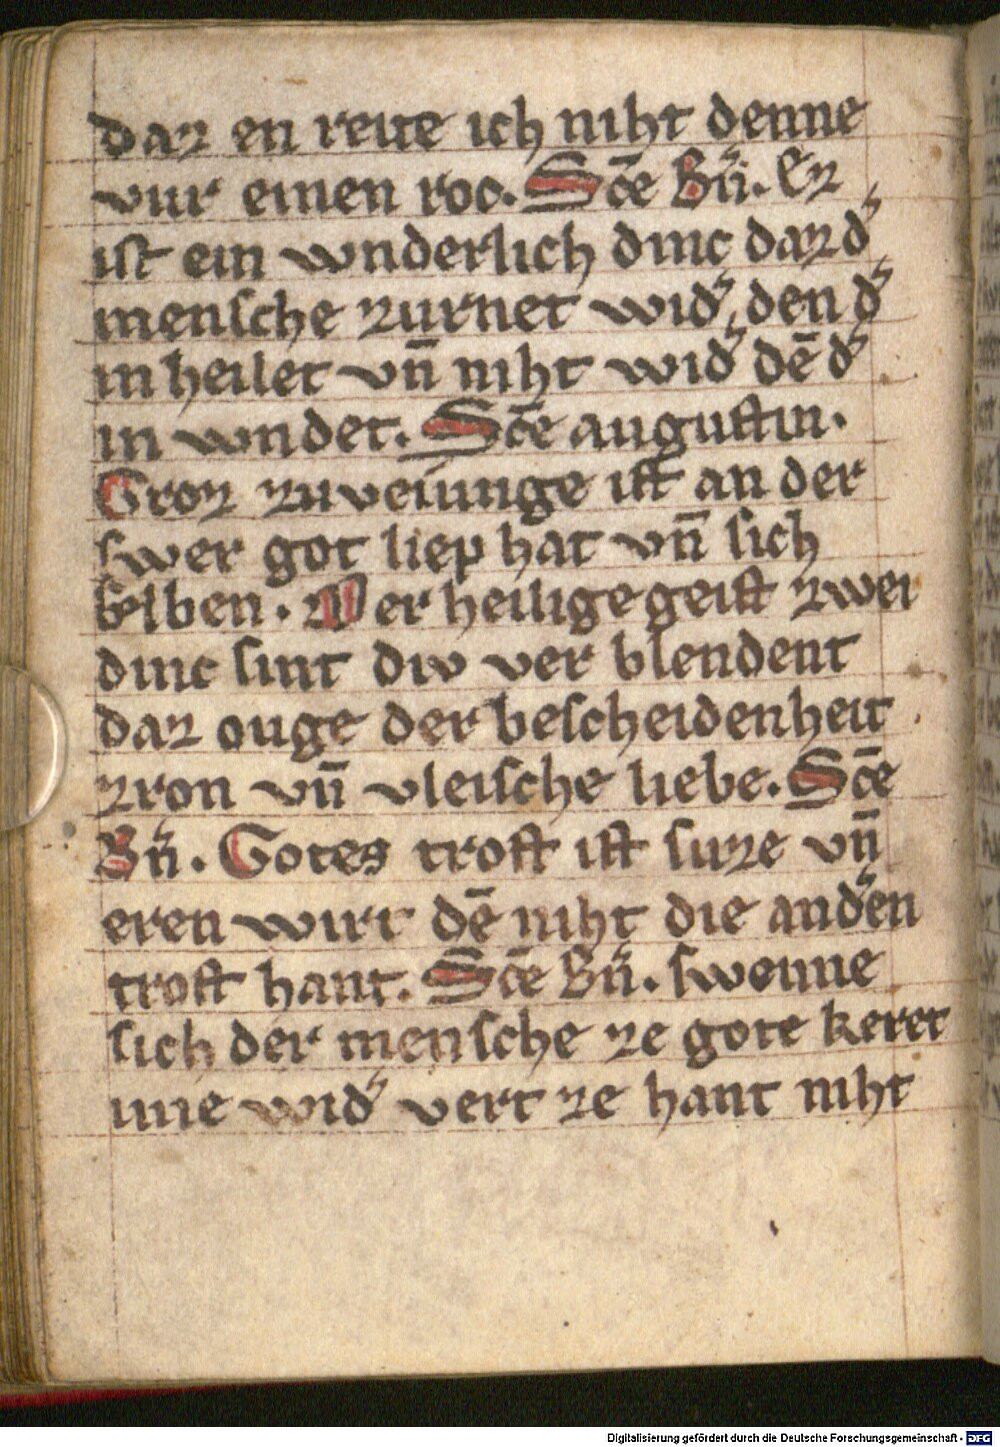 daz en reue ich niht denne
vur einen roc. Sc̄e Bn̄. Ez
ist ein wnderlich dinc daz d᷑
mensche zurnet wid᷑ den d᷑
in heilet vn̄ niht wid᷑ dē d᷑
in wndet. Sc̄e augustin.
Groz zuveiunge ist an der
swer got liep hat vn̄ sich
selben. Der heilige geist zwei
dinc sint div ver blendent
daz ouge der bescheidenheit
zron vn̄ vleische liebe. Sc̄e
Bn̄. Gotes trost ist suze vn̄
eren wirt dē niht die and᷑en
trost hant. Sc̄e Bn̄. swenne
sich der mensche ze gote keret
nie wid᷑ vert ze hant niht
Digitalisierung gefördert durch die Deutsche Forschungsgemeinschaft - DFG